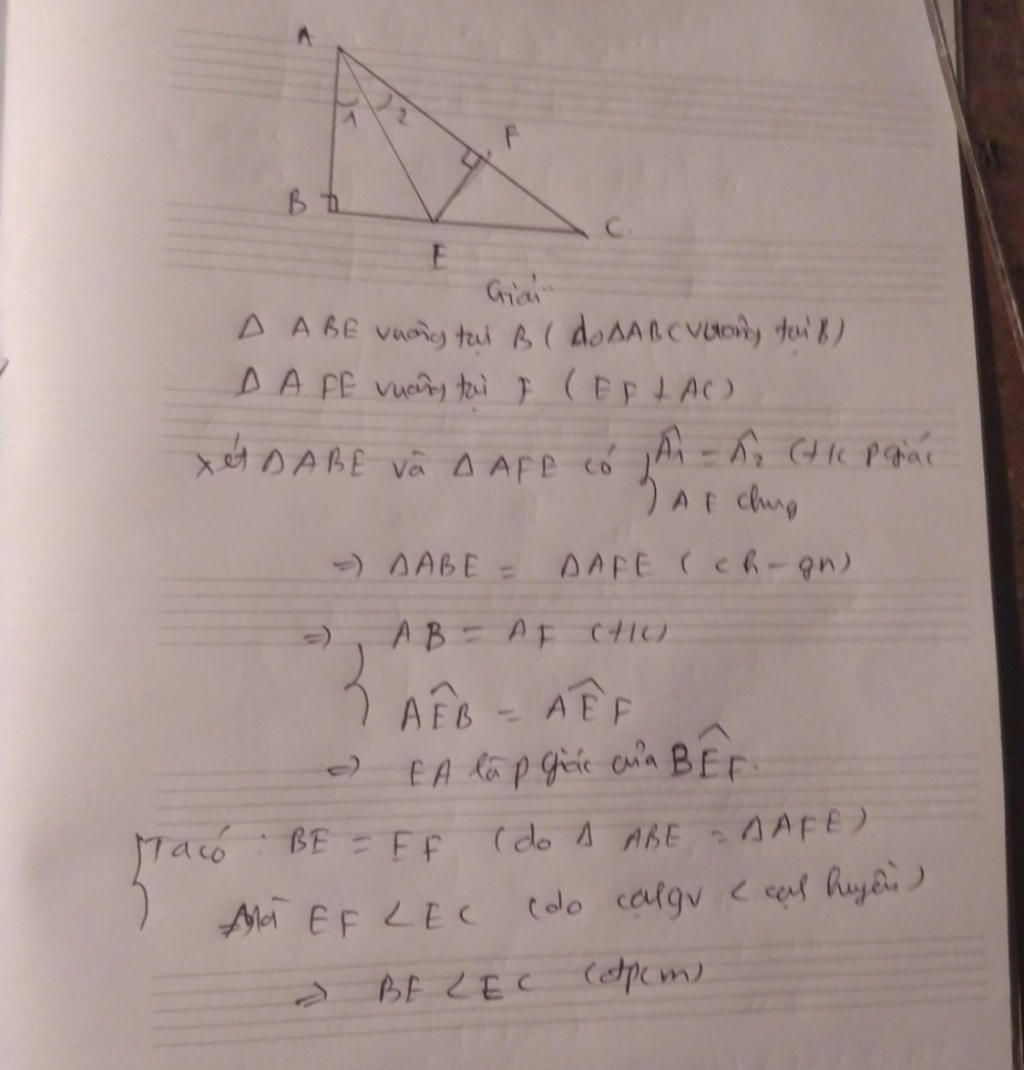 A
1 2
F
B
C.
E
Giải
Δ ABE vuông tại B ( do ΔABC vuông tại B)
Δ AFE vuông tại F ( EF ⊥ AC)
xét ΔABE và Δ AFE có { Â1 = Â2 (t/c p giác
AE chung
=> ΔABE = ΔAFE ( ch - gn)
=> { AB = AF (t/c)
AÊB = AÊF
=> EA là p giác của BÊF.
{ Ta có : BE = EF (do Δ ABE = ΔAFE)
Mà EF < EC (do cạh gv < cạh huyền)
=> BE < EC (đpcm)